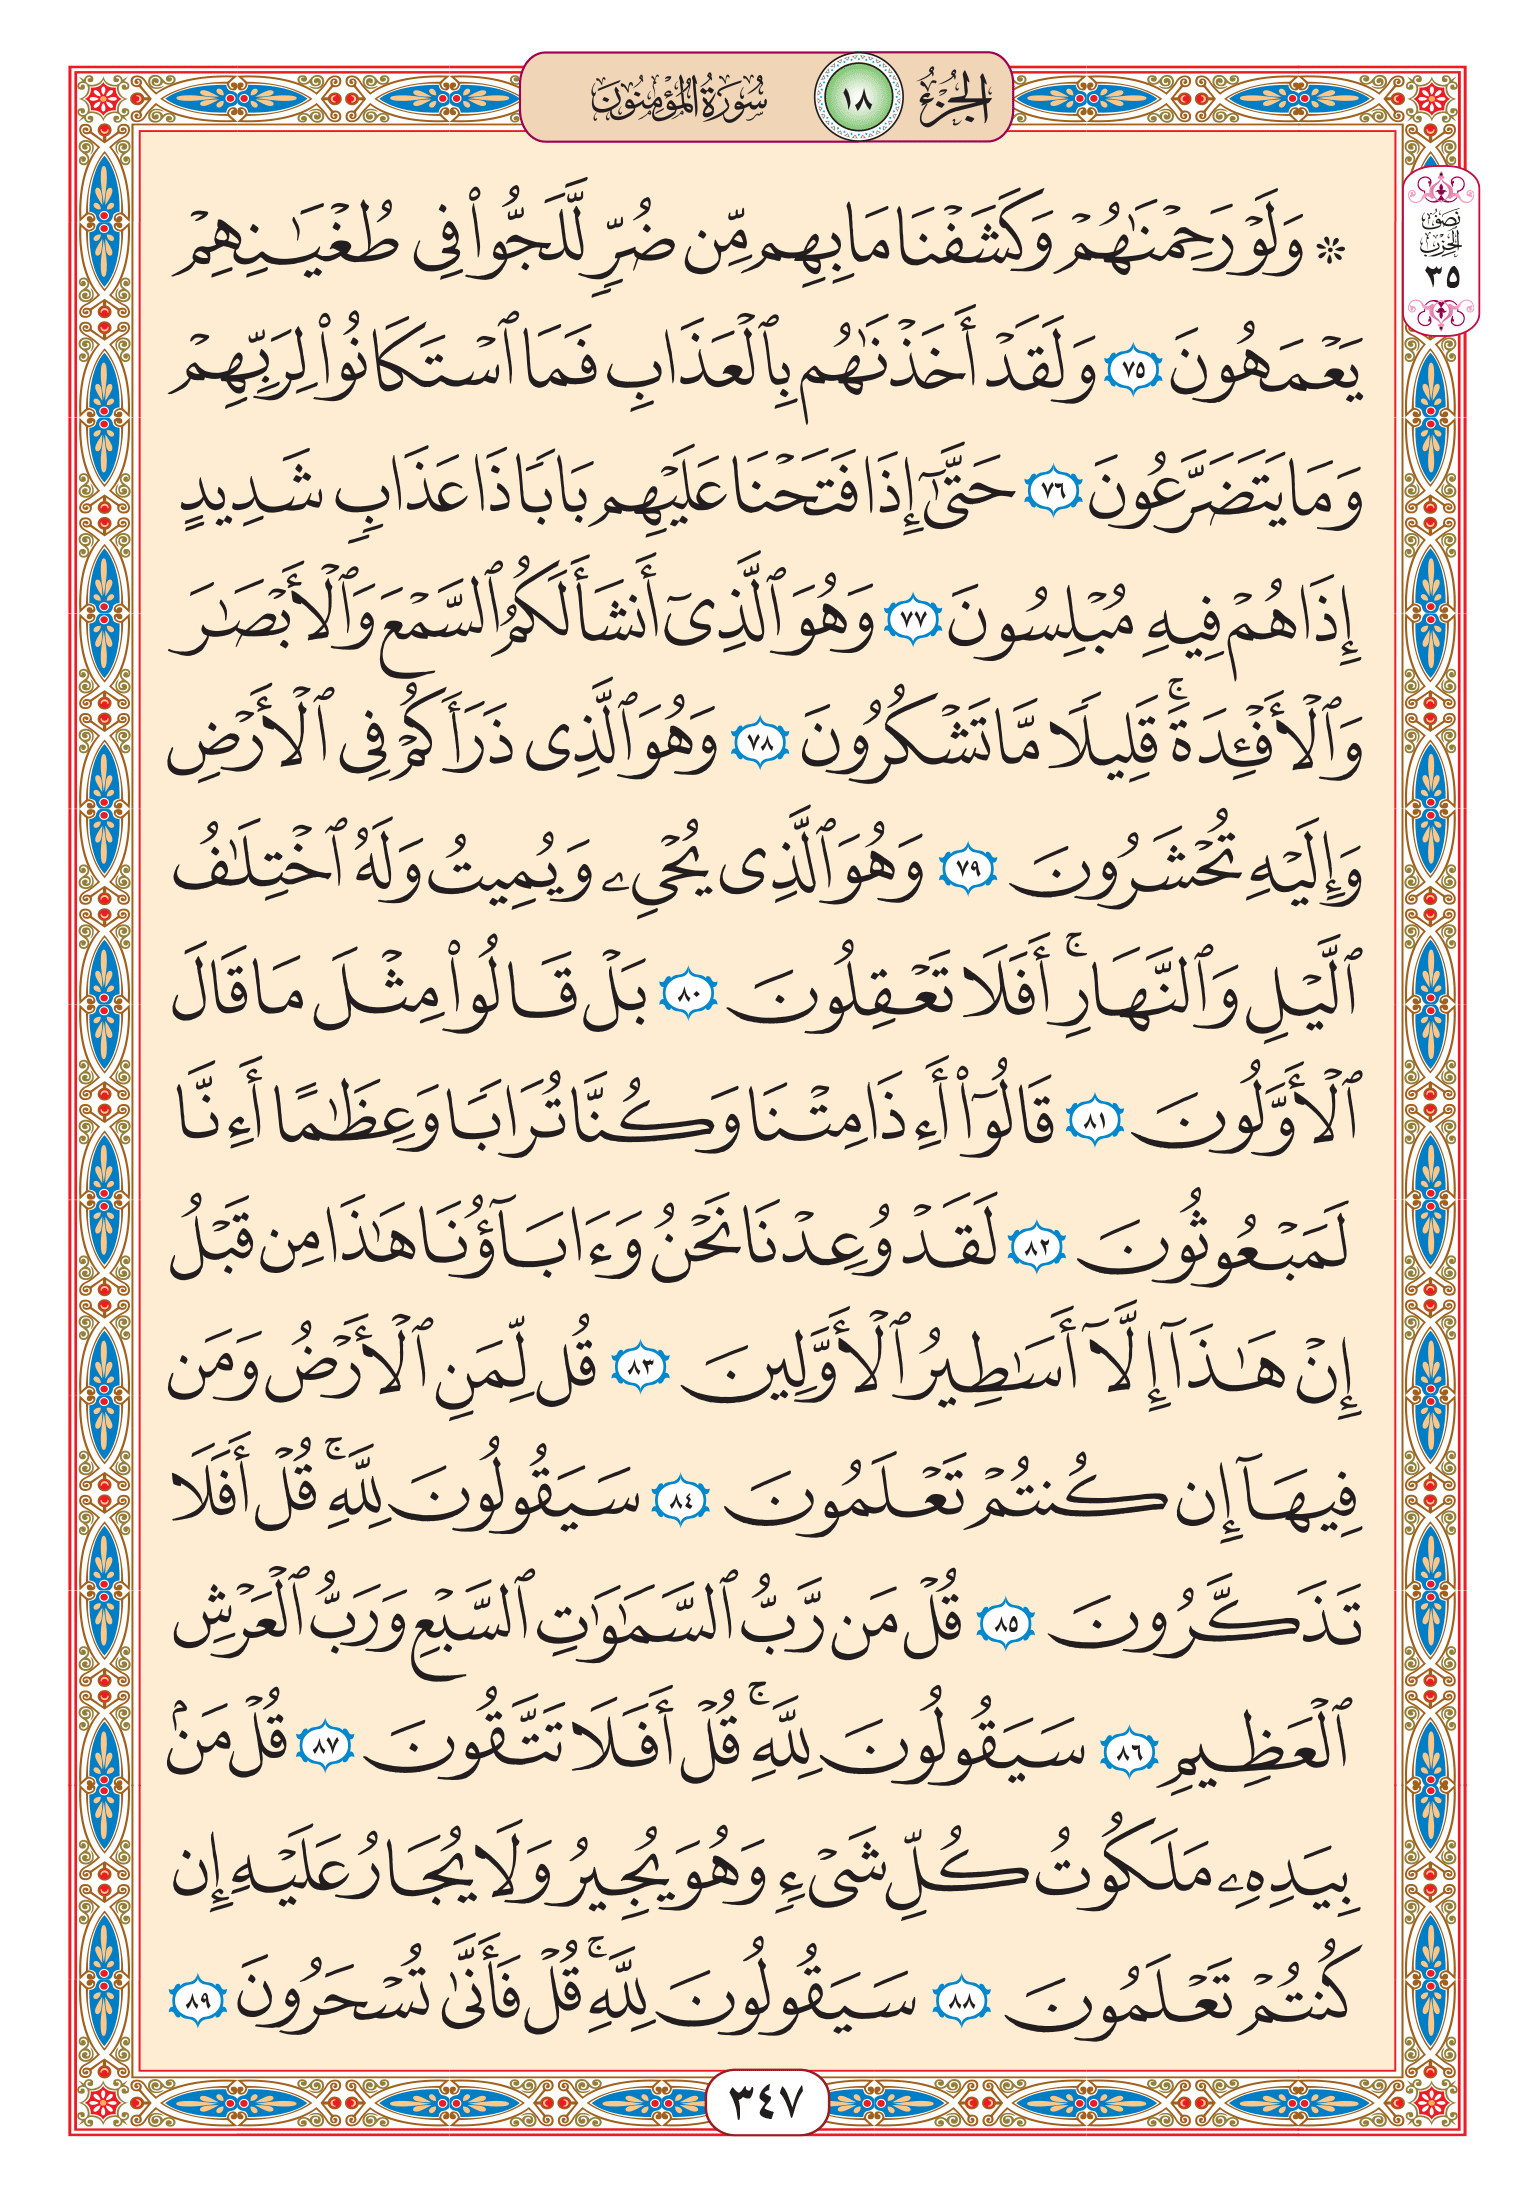 الجزء ١٨ سورة المؤمنون
نصف
الحزب
٣٥
۞ وَلَوْ رَحِمْنَٰهُمْ وَكَشَفْنَا مَا بِهِم مِّن ضُرٍّ لَّلَجُّوا۟ فِى طُغْيَٰنِهِمْ
يَعْمَهُونَ ٧٥ وَلَقَدْ أَخَذْنَٰهُم بِٱلْعَذَابِ فَمَا ٱسْتَكَانُوا۟ لِرَبِّهِمْ
وَمَا يَتَضَرَّعُونَ ٧٦ حَتَّىٰٓ إِذَا فَتَحْنَا عَلَيْهِم بَابًا ذَا عَذَابٍ شَدِيدٍ
إِذَا هُمْ فِيهِ مُبْلِسُونَ ٧٧ وَهُوَ ٱلَّذِىٓ أَنشَأَ لَكُمُ ٱلسَّمْعَ وَٱلْأَبْصَٰرَ
وَٱلْأَفْـِٔدَةَ ۚ قَلِيلًا مَّا تَشْكُرُونَ ٧٨ وَهُوَ ٱلَّذِى ذَرَأَكُمْ فِى ٱلْأَرْضِ
وَإِلَيْهِ تُحْشَرُونَ ٧٩ وَهُوَ ٱلَّذِى يُحْىِۦ وَيُمِيتُ وَلَهُ ٱخْتِلَٰفُ
ٱلَّيْلِ وَٱلنَّهَارِ ۚ أَفَلَا تَعْقِلُونَ ٨٠ بَلْ قَالُوا۟ مِثْلَ مَا قَالَ
ٱلْأَوَّلُونَ ٨١ قَالُوٓا۟ أَءِذَا مِتْنَا وَكُنَّا تُرَابًا وَعِظَٰمًا أَءِنَّا
لَمَبْعُوثُونَ ٨٢ لَقَدْ وُعِدْنَا نَحْنُ وَءَابَآؤُنَا هَٰذَا مِن قَبْلُ
إِنْ هَٰذَآ إِلَّآ أَسَٰطِيرُ ٱلْأَوَّلِينَ ٨٣ قُل لِّمَنِ ٱلْأَرْضُ وَمَن
فِيهَآ إِن كُنتُمْ تَعْلَمُونَ ٨٤ سَيَقُولُونَ لِلَّهِ ۚ قُلْ أَفَلَا
تَذَكَّرُونَ ٨٥ قُلْ مَن رَّبُّ ٱلسَّمَٰوَٰتِ ٱلسَّبْعِ وَرَبُّ ٱلْعَرْشِ
ٱلْعَظِيمِ ٨٦ سَيَقُولُونَ لِلَّهِ ۚ قُلْ أَفَلَا تَتَّقُونَ ٨٧ قُلْ مَنۢ
بِيَدِهِۦ مَلَكُوتُ كُلِّ شَىْءٍ وَهُوَ يُجِيرُ وَلَا يُجَارُ عَلَيْهِ إِن
كُنتُمْ تَعْلَمُونَ ٨٨ سَيَقُولُونَ لِلَّهِ ۚ قُلْ فَأَنَّىٰ تُسْحَرُونَ ٨٩
٣٤٧